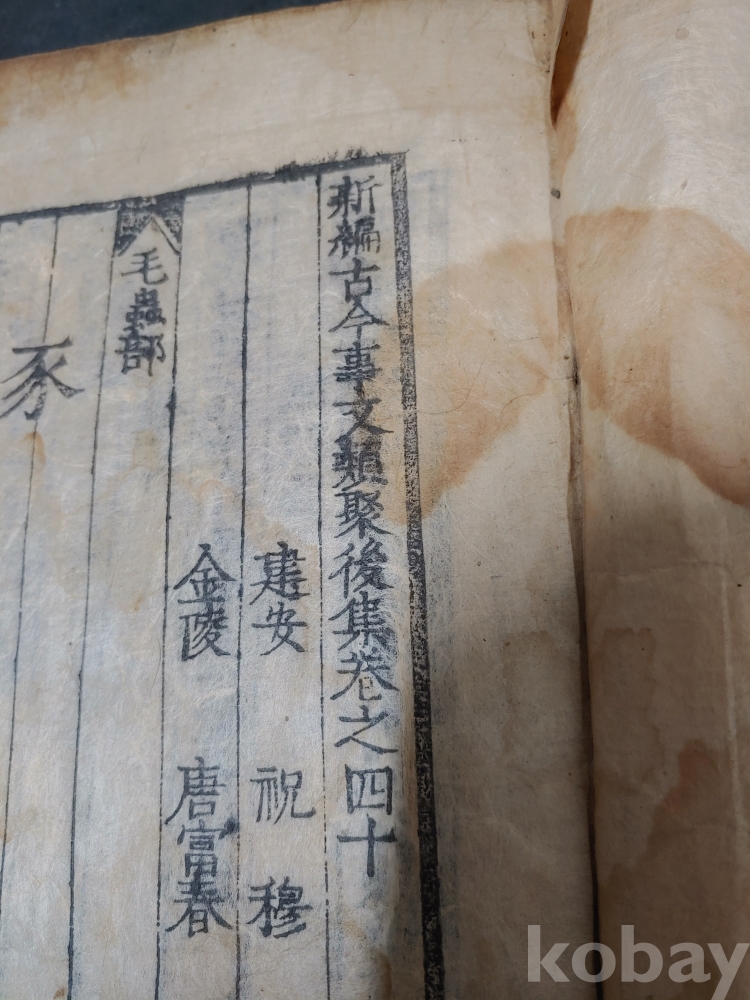 新編古今事文類聚後集卷之四十
建安 祝穆
金陵 唐富春
毛蟲部
豕
kobay